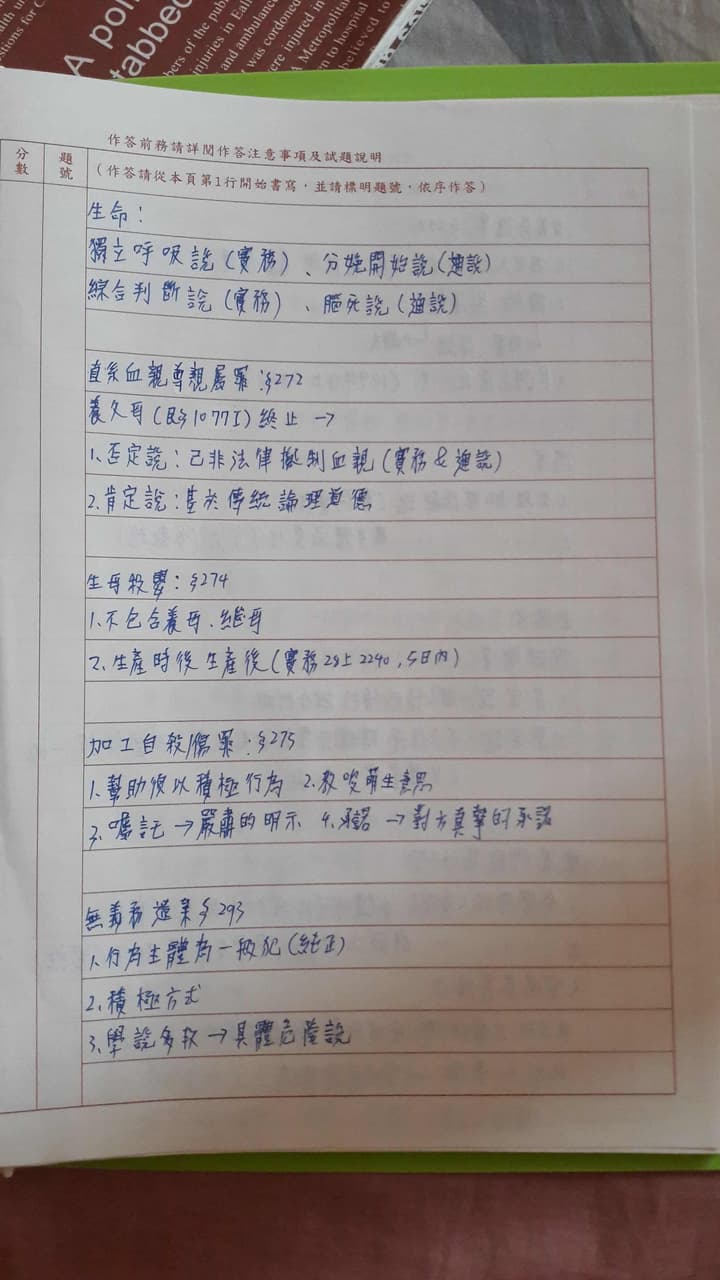 A pol
tabbed
bers of the public
injuries in Eali
and ambulance
was cordoned
ere injured in
A Metropolitan
n to hospital
believed to
作答前務請詳閱作答注意事項及試題說明
分數
題號
(作答請從本頁第1行開始書寫，並請標明題號，依序作答)
生命：
獨立呼吸說(實務)、分娩開始說(通說)
綜合判斷說(實務)、腦死說(通說)
直系血親尊親屬罪：§272
養父母(民§1077I)終止→
1、否定說：已非法律擬制血親(實務&通說)
2、肯定說：基於傳統論理道德
生母殺嬰：§274
1、不包含養母、繼母
2、生產時後生產後(實務28上2240，5日內)
加工自殺/傷罪：§275
1、幫助後以積極行為 2、教唆萌生意思
3、囑託→嚴肅的明示 4、承諾→對方真摯的承諾
無義務遺棄§293
1、行為主體為一般犯(純正)
2、積極方式
3、學說多數→具體危險說